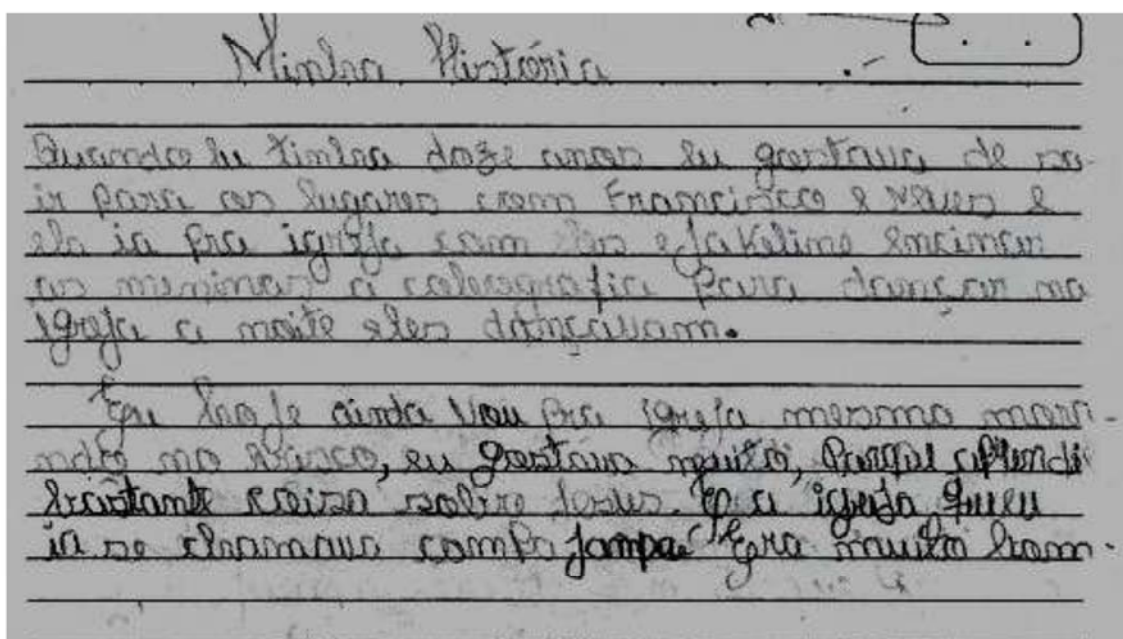 Minha História
Quando eu tinha doze anos eu gostava de sa-
ir para os lugares com Francisco e Neves e
ela ia pra igreja com eles e Jakeline encinar
as meninas a coleografia para dançar na
igreja a noite eles dançavam.
Eu hoje ainda vou pra igreja mesmo mora-
ndo no Risco, eu gostava muito, porque aprendi
bastante coisa sobre Jesus. E a igreja queu
ia se chamava Jampa Era muito bom.